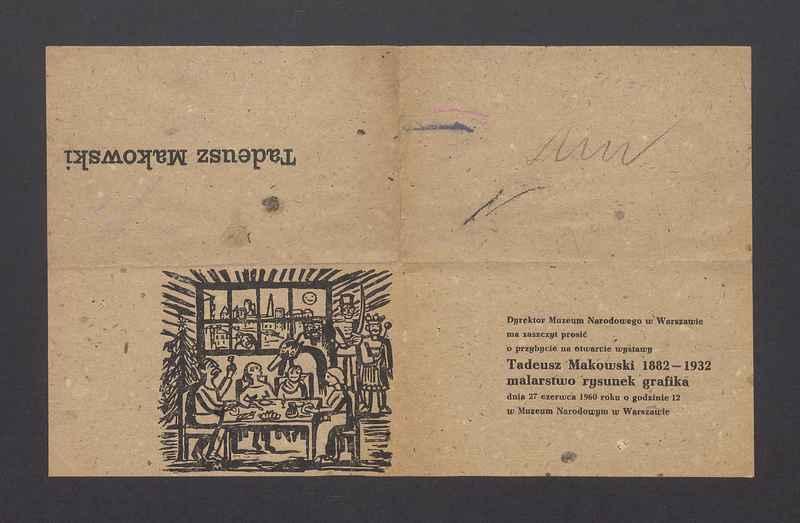 Tadeusz Makowski
Dyrektor Muzeum Narodowego w Warszawie
ma zaszczyt prosić
o przybycie na otwarcie wystawy
Tadeusz Makowski 1882—1932
malarstwo rysunek grafika
dnia 27 czerwca 1960 roku o godzinie 12
w Muzeum Narodowym w Warszawie